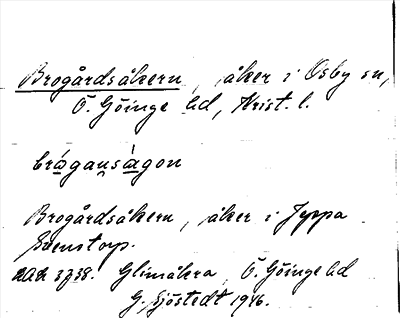 Brogårdsåkern, åker i Osby sn,
Ö. Göinge hd, Krist. l.
brågansågon
Brogårdsåkern, åker i Jyppa
Svenstorp.
Glimåkra, Ö. Göinge hd
G. Sjöstedt 1946.